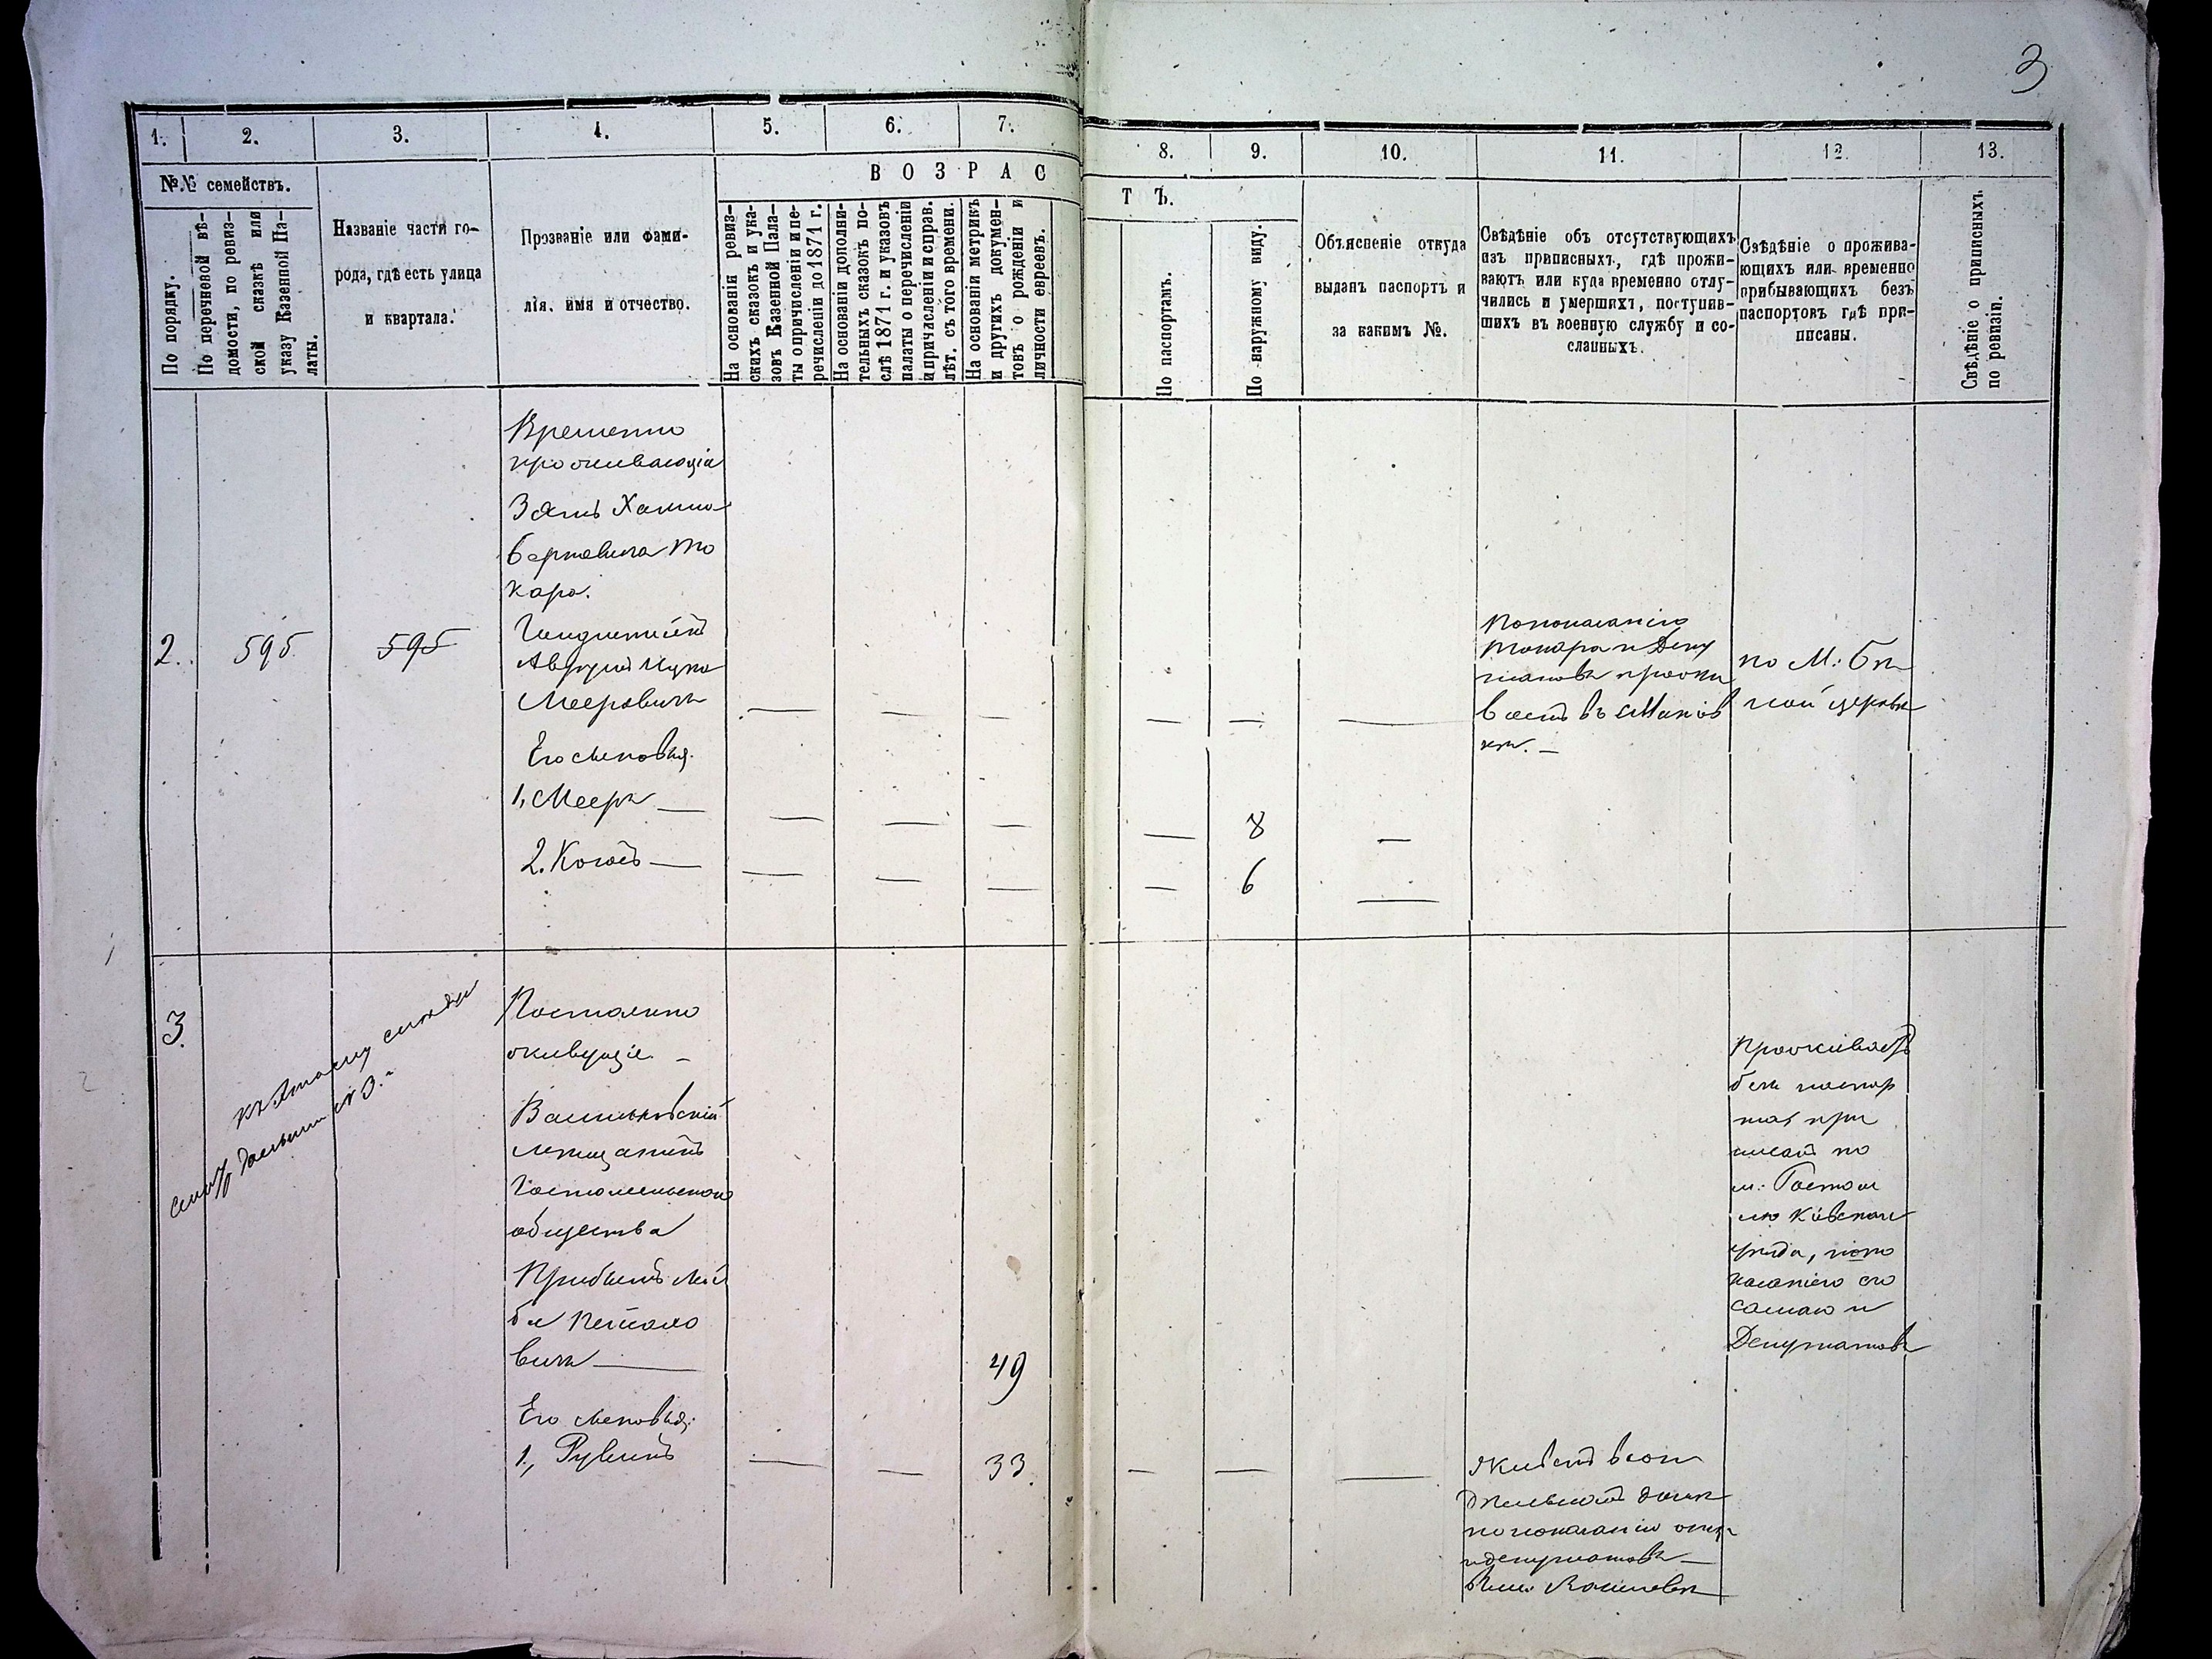 3
1.
2.
3.
4.
5.
6.
7.
8.
9.
10.
11.
12.
13.
№№ семействъ.
В О З Р А С
Т Ъ.
По порядку.
По перечневой вѣ-
домости, по ревиз-
ской сказкѣ или
указу Казенной Па-
латы.
Названіе части го-
рода, гдѣ есть улица
и квартала.
Прозваніе или фами-
лія, имя и отчество.
На основаніи ревиз-
скихъ сказокъ и ука-
зовъ Казенной Пала-
ты о причисленіи и пе-
речисленіи до 1871 г.
На основаніи дополни-
тельныхъ сказокъ по-
слѣ 1871 г. и указовъ
палаты о перечисленіи
и причисленіи и справ.
лѣт. съ того времени.
На основаніи метрикъ
и другихъ докумен-
товъ о рожденіи и
личности евреевъ.
По паспортамъ.
По наружному виду.
Объясненіе откуда
выданъ паспортъ и
за какимъ №.
Свѣдѣніе объ отсутствующихъ
изъ приписныхъ, гдѣ прожи-
ваютъ или куда временно отлу-
чились и умершихъ, поступив-
шихъ въ военную службу и со-
сланныхъ.
Свѣдѣніе о прожива-
ющихъ или временно
прибывающихъ безъ
паспортовъ гдѣ при-
писаны.
Свѣдѣніе о приписныхъ
по ревизіи.
Временно
проживающіе
Зять Хаима
Берковича То
кара.
2. 595 595
Мееровичъ
Его сыновья.
1, Мееръ
8
2.
6
По показанію
Токара и Депу
татовъ прожи
ваетъ въ
по М: Бѣ
лой церкви
3.
къ этому
Постоянно
живущіе
Васильковскій
мѣщанинъ
Гостомельскаго
общества
вичъ 49
Его сыновья:
1, Рувинъ 33
Проживаетъ
безъ паспор
та, при
писанъ по
м: Гостом
лю Кіевскаго
уѣзда, по по
казанію его
самаго и
Депутатовъ
Живетъ въ от
дѣльномъ домѣ
по показанію отца
и депутатовъ